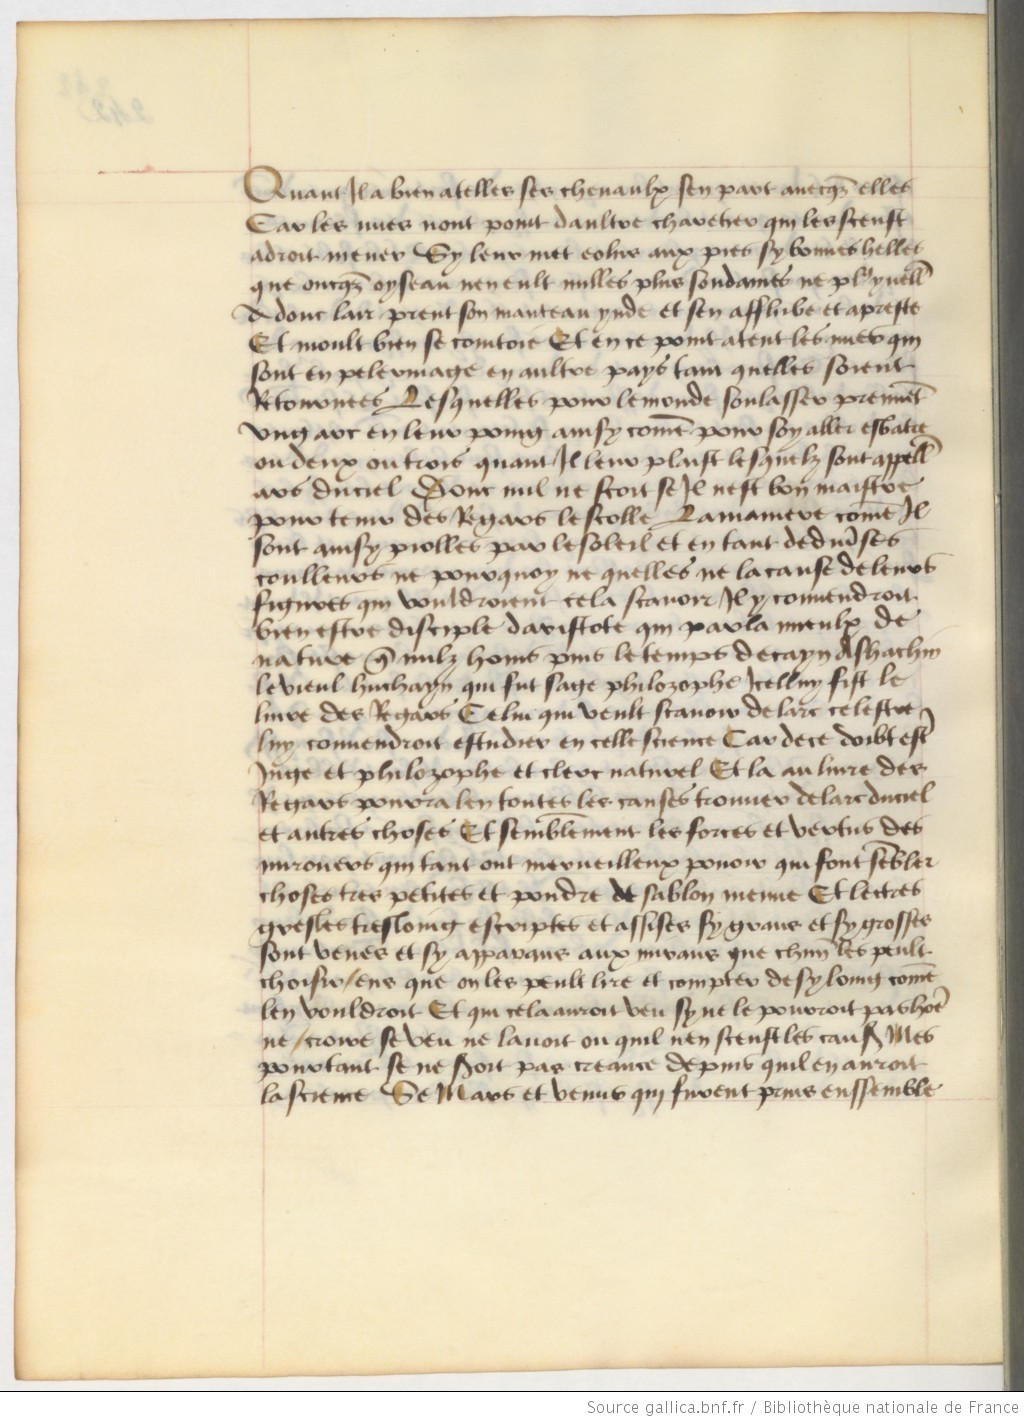 Quant Il a bien atelles ses chevaulx sen part avecqz elles
Car les nues nont point daultre charetier qui les sceust
adroit mener Sy leur met es piez sy bonnes helles
que oncqz oyseau nen eult nulles plus soudaines ne pl9 ynell
A donc lair prent son manteau ynde et sen afflube et apreste
Et moult bien se comtoie Et en ce point atent les nues qui
sont en pelermage en aultre pays tant quelles soient
Retournees Lesquelles pour le monde soulasser prennēt
ung arc en leur poing ainsy comē pour soy aller esbatre
ou deux ou trois quant Il leur plaist lesquelz sont appell
ars du ciel Donc nul ne scoit se Il nest bon maistre
pour tenir des Regars lescolle La maniere comē Il
sont ainsy piolles par le soleil et en tant de diuses
coulleurs ne pourquoy ne quelles ne la cause de leurs
figures qui vouldroient cela scavoir Il y conuendroit
bien estre disciple daristote qui parla mieulx de
nature q̄ nulz homs puis le temps de cayn Alhachin
le vieul huchayn qui fut sage philozophe Icelluy fist le
livre des Regars Celui qui veult scanoir de larc celestre
luy conuendroit estudier en celle science Car de ce doibt est
Juge et philozophe et clerc naturel Et la au livre des
Regars pourra len toutes les causes trouver de larc du ciel
et autres choses Et semblement les forces et vertus des
mirouers qui tant ont merueilleux pouoir qui font sēbler
choses tres petites et poudre de sablon menue Et lectres
gresles tresloing escriptes et assises sy grans et sy grosses
sont venes et sy apparans aux mirans que chun les peult
choisir/ens que on les peult lire et compter de sy loing comē
len vouldroit Et qui cela auroit veu sy ne le pouroit pas hoē
ne /croire se veu ne lavoit ou quil nen sceust les causs Mes
pourtant se ne soit pas creance depuis quil en auroit
la science Se Mars et venus qui furent prins enssemble